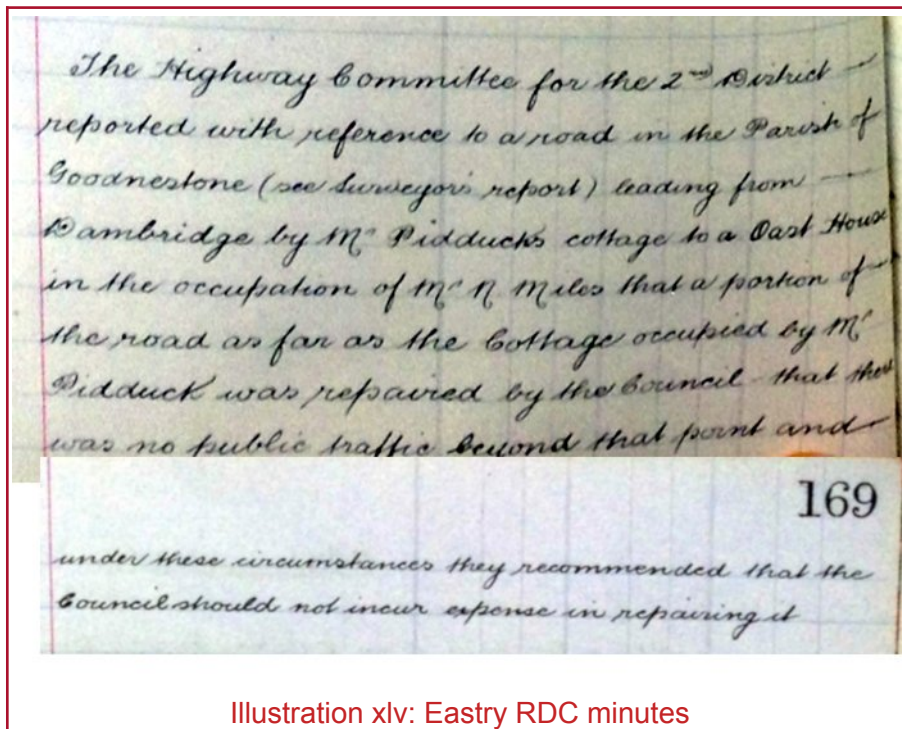 The Highway Committee for the 2nd District
reported with reference to a road in the Parish of
Goodnestone (see Surveyor's report) leading from
Dambridge by Mr Pidducks cottage to a Oast House
in the occupation of Mr N Miles that a portion of
the road as far as the Cottage occupied by Mr
Pidduck was repaired by the Council that there
was no public traffic beyond that point and
169
under these circumstances they recommended that the
Council should not incur expense in repairing it
Illustration xlv: Eastry RDC minutes